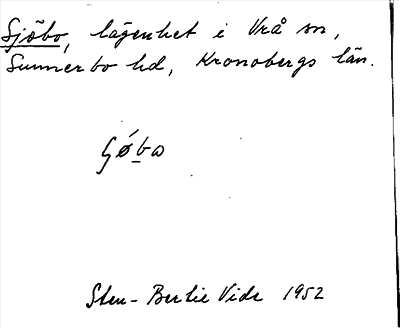 Sjöbo, lägenhet i Vrå sn,
Sunnerbo hd, Kronobergs län.
Sten-Bertil Vide 1952